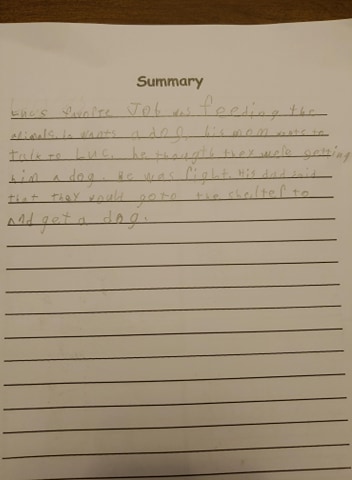 Summary
Luc's favorite Job was feeding the
animals. he wants a dog. his mom wants to
Talk to Luc. he thought they were getting
him a dog. He was right. His dad said
that they would go to the shelter to
and get a dog.